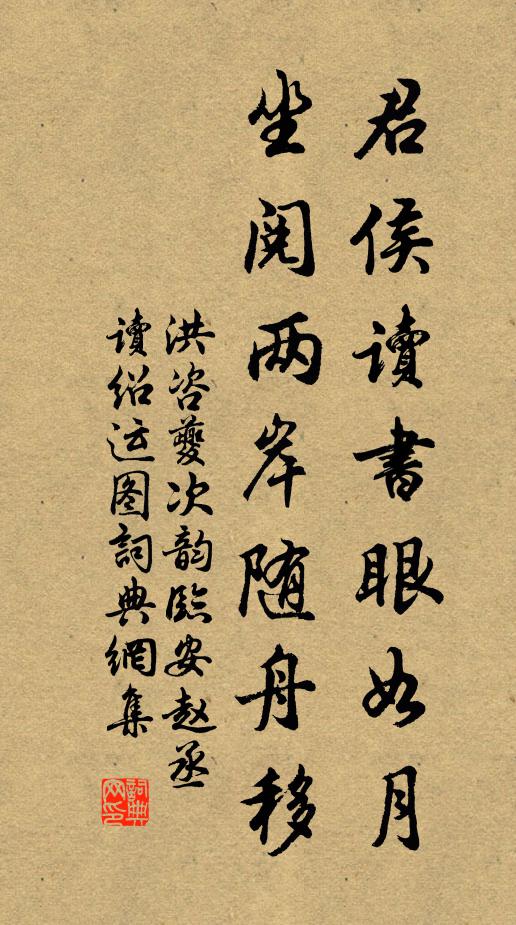 君侯讀書眼如月
坐阅两岸随舟移
洪咨夔次韵臨安赵丞
读绍运图詞典網集
詞典网印